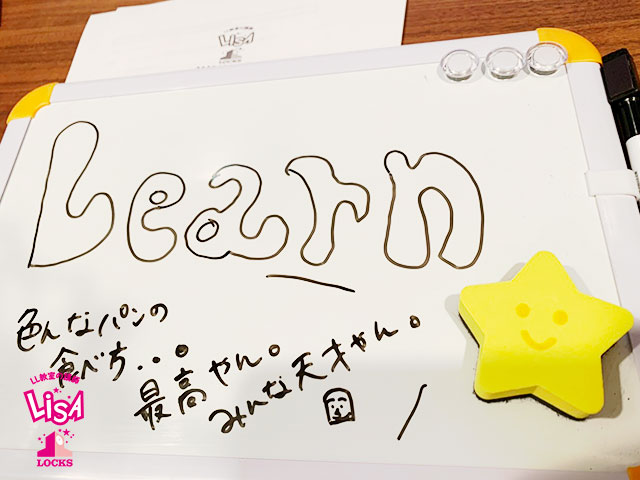 LiSA
LOCKS
Learn
色んなパンの
食べ方・・・
最高やん。
みんな天才やん。
LL教室の
LiSA
LOCKS